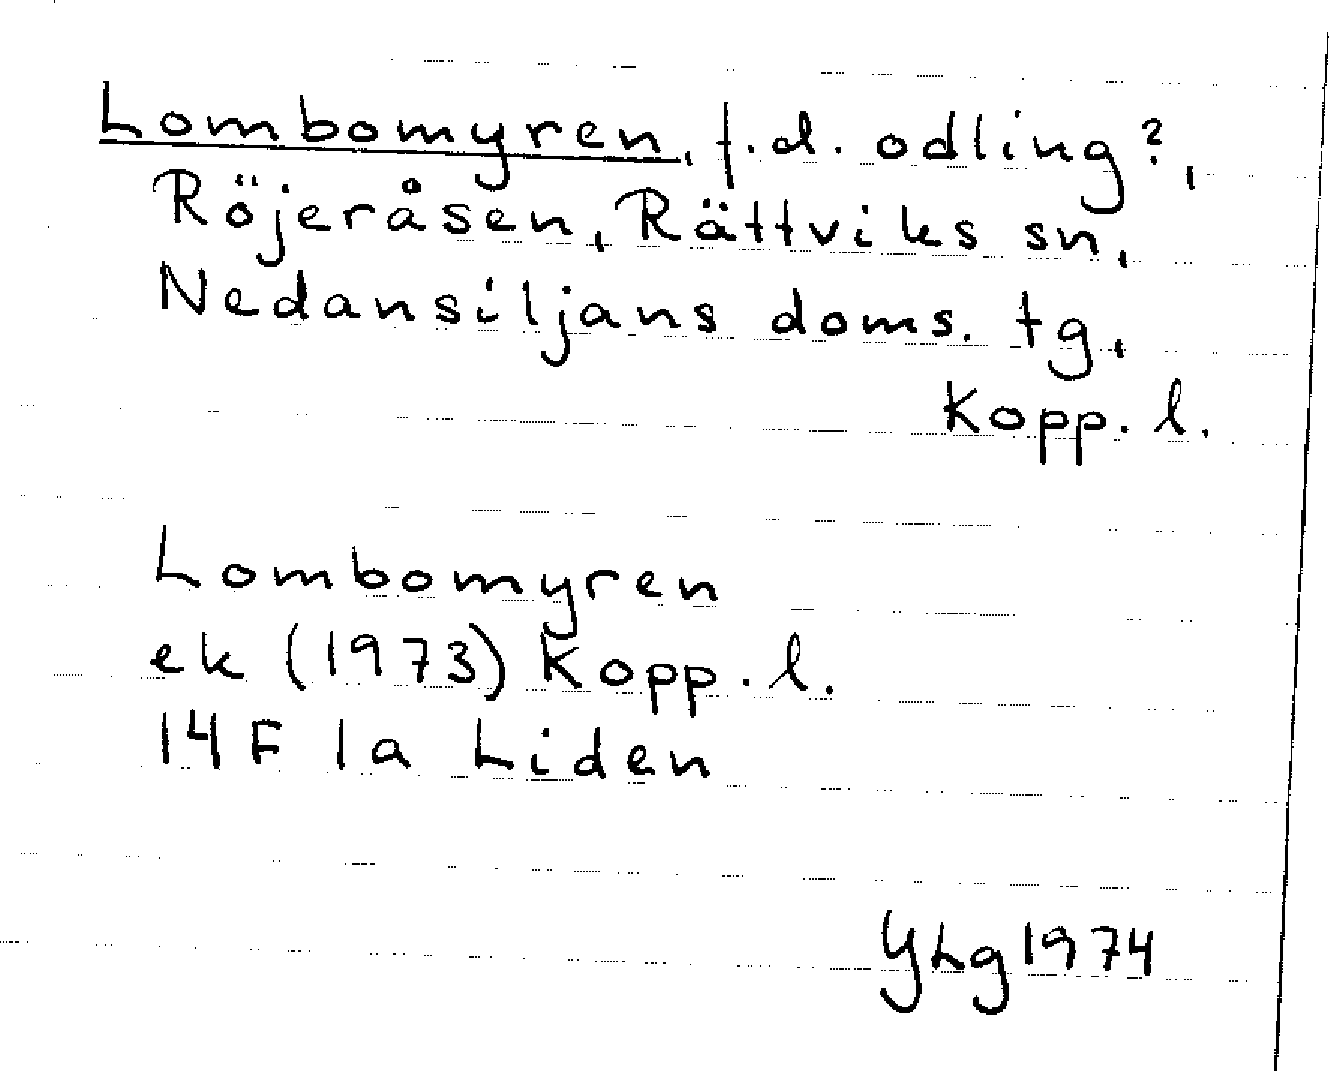 Lombomyren, f.d. odling?,
Röjeråsen, Rättviks sn,
Nedansiljans doms. tg,
Kopp. l.
Lombomyren
ek (1973) Kopp. l.
14F 1a Liden
YLg 1974